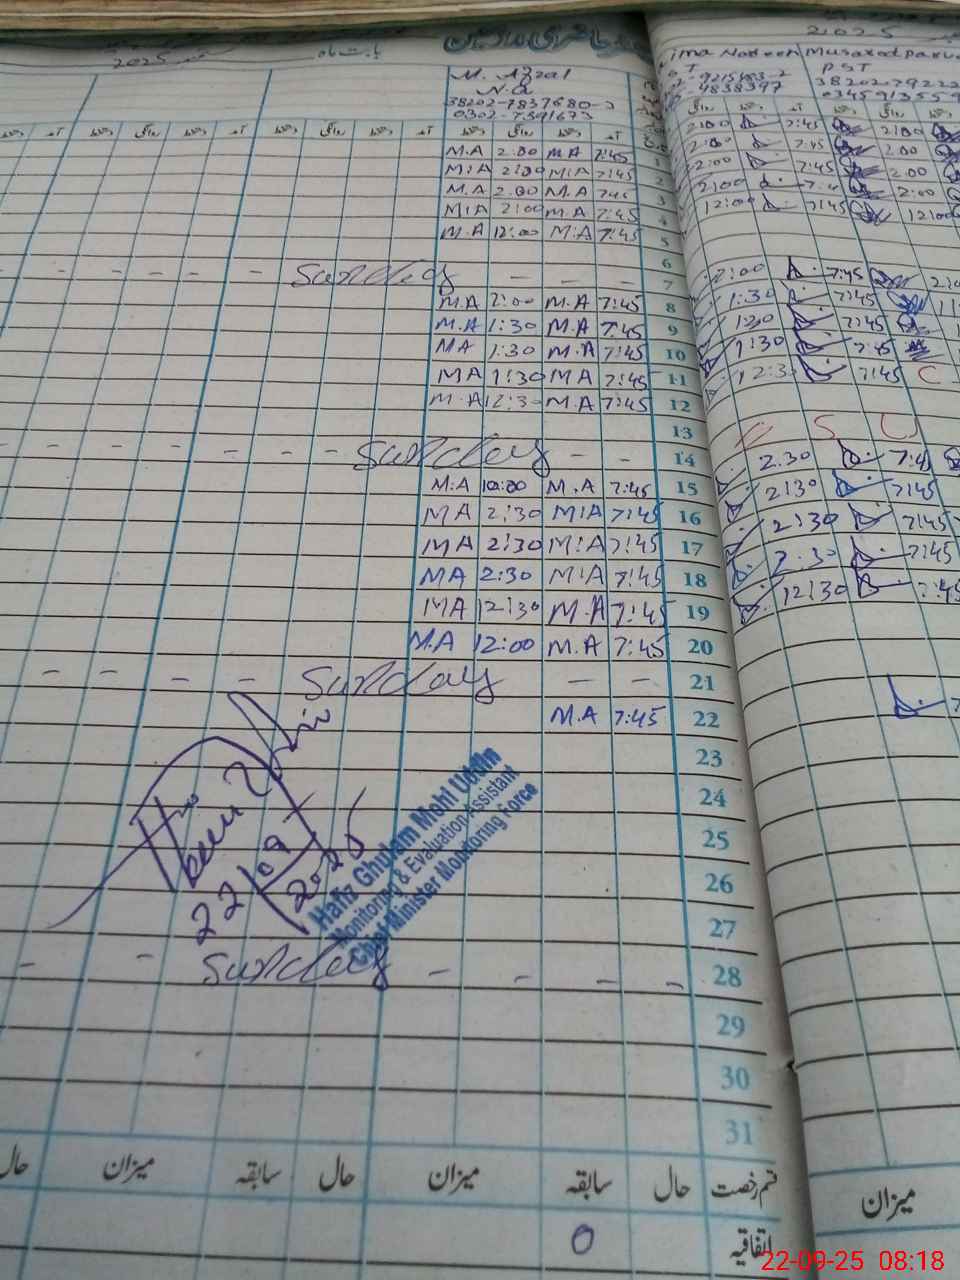 2025
بابت ماه
M. Afzal
N.A
38202-7837680-3
0302-7391673
M.A 2:00 M A 7:45 1
M:A 2:00 M:A 7:45 2
M.A 2:00 M.A 7:45 3
M:A 2:00 M.A 7:45 4
M.A 12:00 M:A 7:45 5
6
Sunday 7
M.A 2:00 M.A 7:45 8
M.A 1:30 M.A 7:45 9
MA 1:30 M.A 7:45 10
MA 1:30 MA 7:45 11
M.A 12:30 M.A 7:45 12
13
Sunday 14
M:A 10:00 M.A 7:45 15
MA 2:30 M:A 7:45 16
MA 2:30 M:A 7:45 17
MA 2:30 M:A 7:45 18
MA 12:30 M.A 7:45 19
M.A 12:00 M.A 7:45 20
Sunday 21
M.A 7:45 22
23
24
25
26
27
Sunday 28
29
30
31
22/09/2025
Hafiz Ghulam Mohi Uddin
Monitoring & Evaluation Assistant
Chief Minister Monitoring Force
حال میزان سابقہ حال میزان سابقہ حال قسم رخصت
0 اتفاقیہ
2025
Noreen Musarat
PST
4838397
2:00 7:45 2:00
2:00 7:45 2:00
2:00 7:45 2:00
2:00 2:00
12:00 7:45 12:00
2:00 7:45
1:30 7:45
1:30 7:45
1:30 7:45
12:30 7:45 C
2:30 7:45
2:30 7:45
2:30 7:45
2:30 7:45
12:30 7:45
میزان
22-09-25 08:18